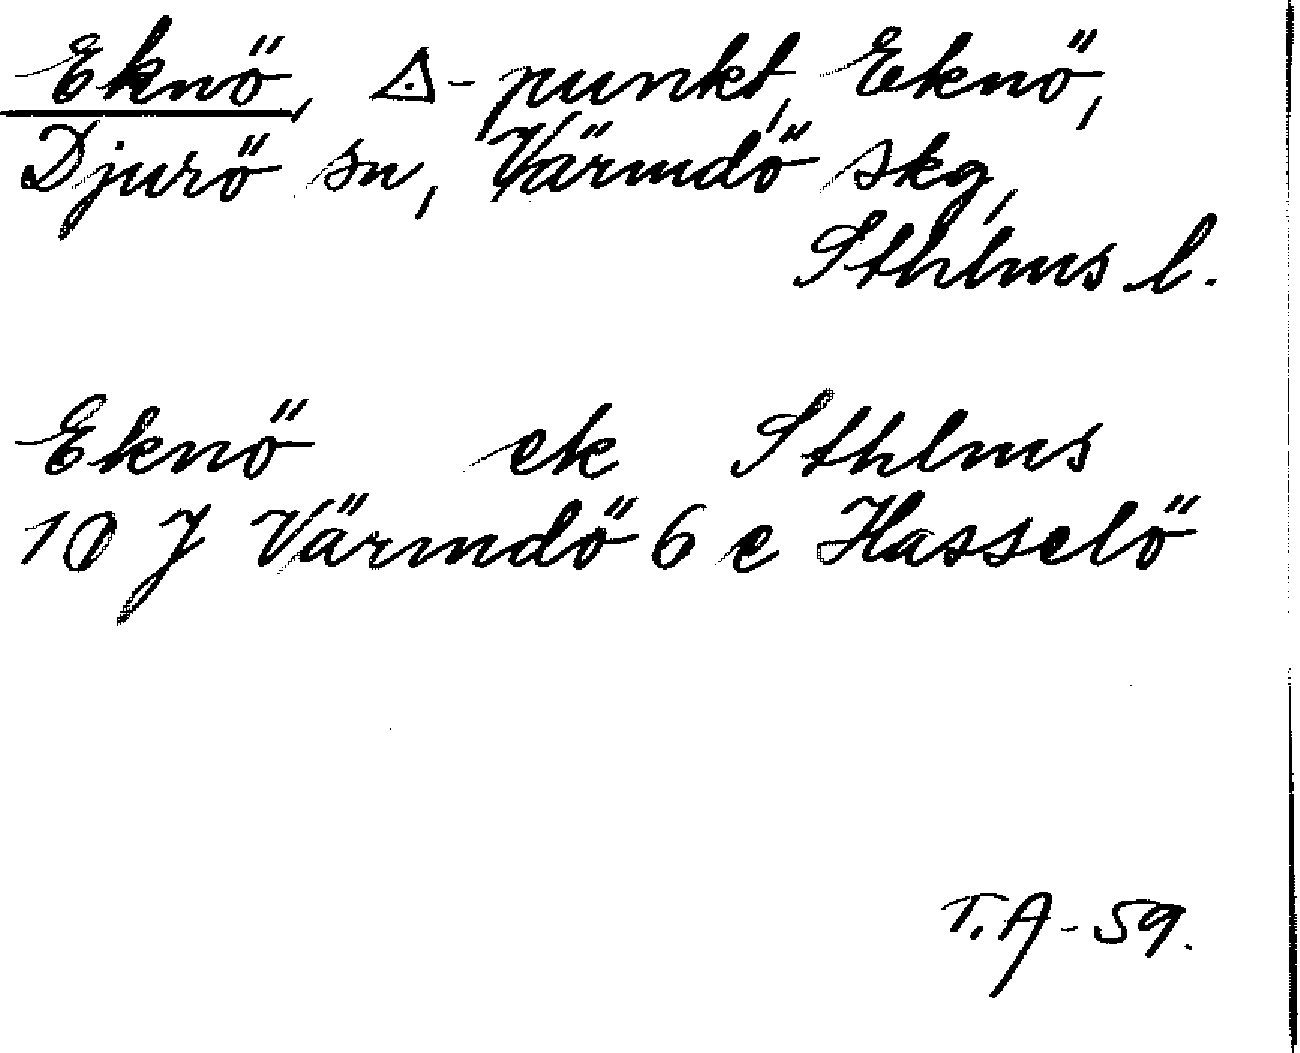 Eknö, △-punkt, Eknö,
Djurö sn, Värmdö skg,
Sthlms l.
Eknö ek Sthlms
10 J Värmdö 6 e Hasselö
T.A-59.